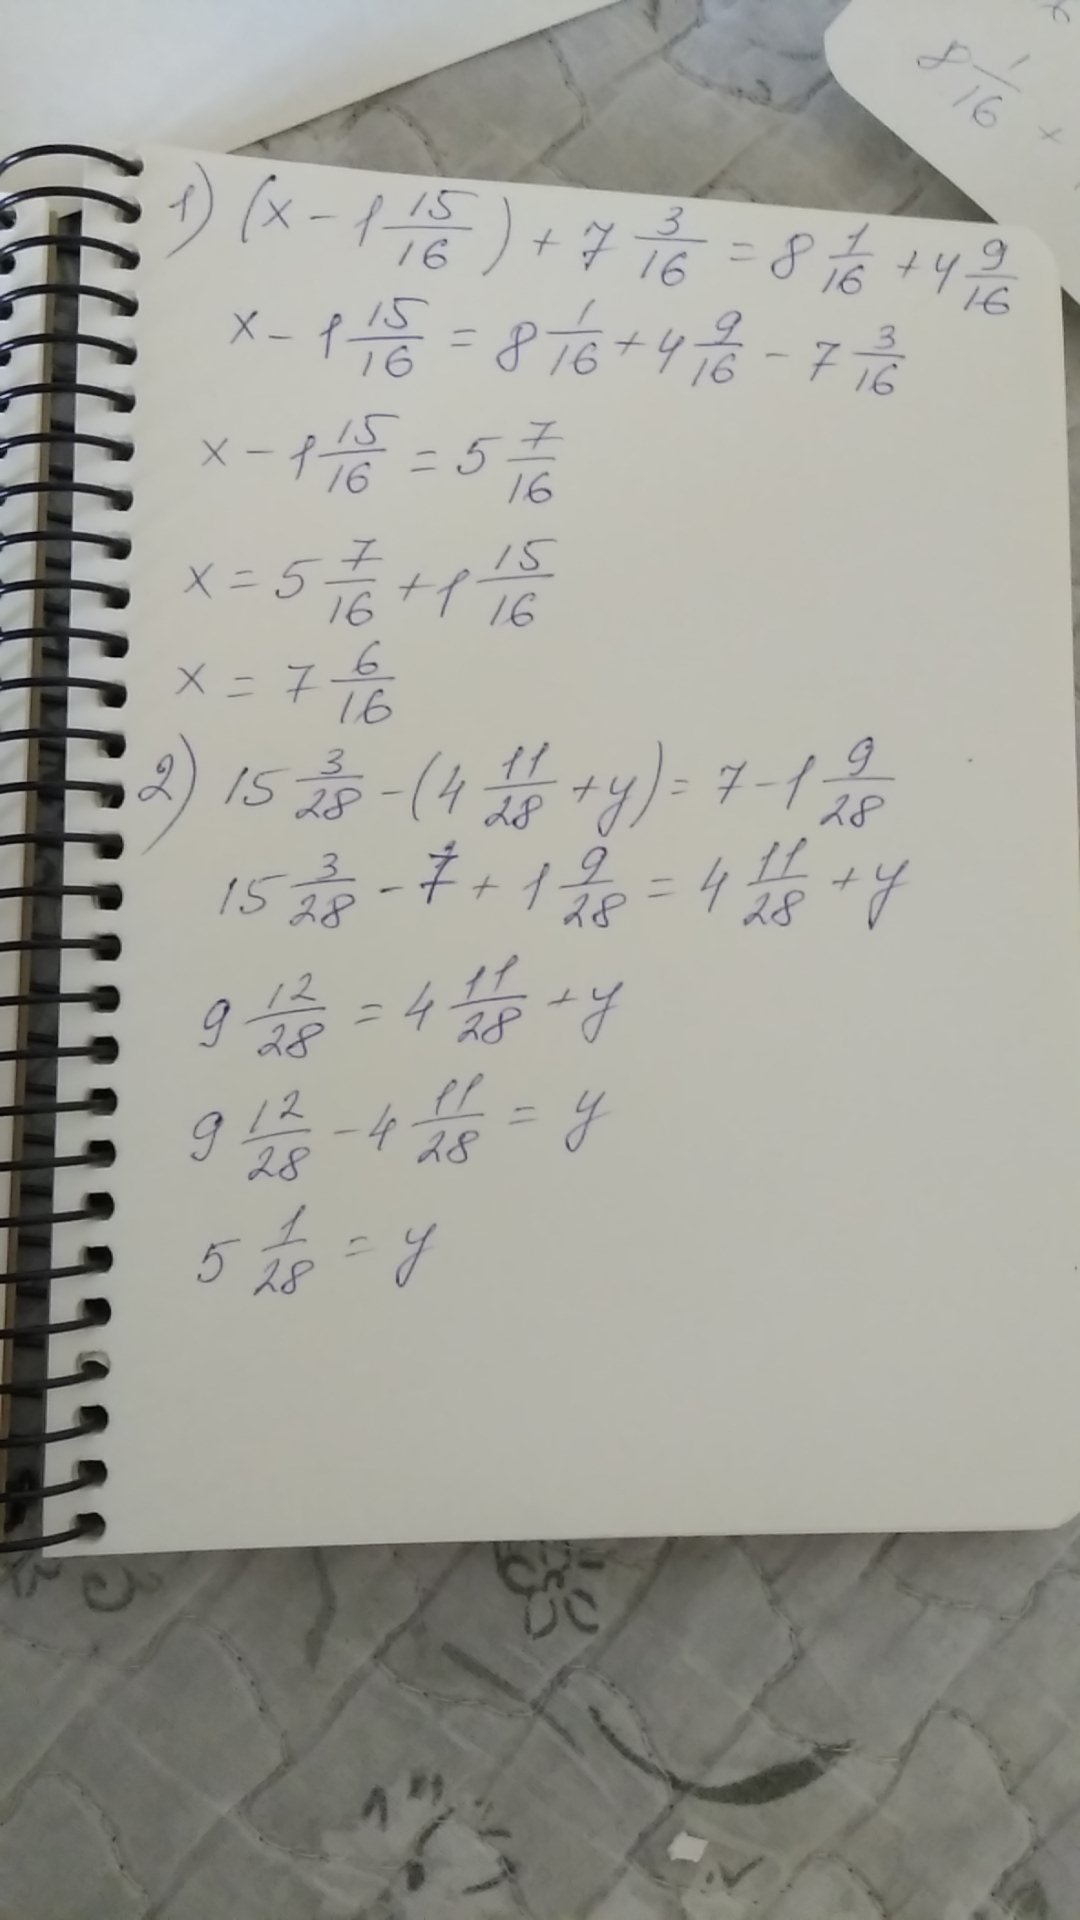 8 1/16 x
1) (x - 1 15/16) + 7 3/16 = 8 1/16 + 4 9/16
x - 1 15/16 = 8 1/16 + 4 9/16 - 7 3/16
x - 1 15/16 = 5 7/16
x = 5 7/16 + 1 15/16
x = 7 6/16
2) 15 3/28 - (4 11/28 + y) = 7 - 1 9/28
15 3/28 - 7 + 1 9/28 = 4 11/28 + y
9 12/28 = 4 11/28 + y
9 12/28 - 4 11/28 = y
5 1/28 = y